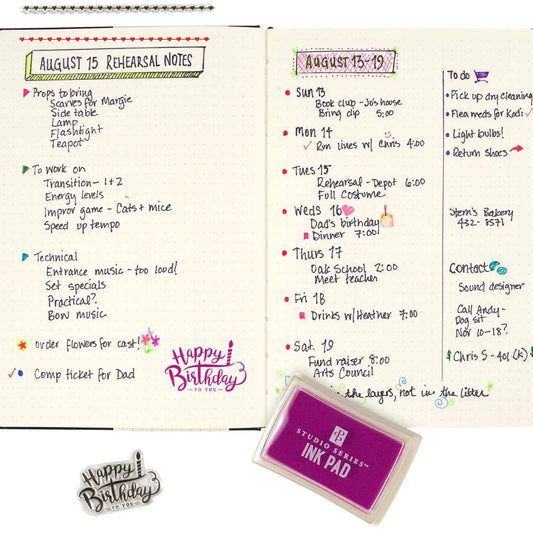 AUGUST 15 REHEARSAL NOTES
Props to bring
Scarves for Margie
Side table
Lamp
Flashlight
Teapot
To work on
Transition - 1+2
Energy levels
Improv game - Cats + mice
Speed up tempo
Technical
Entrance music - too loud!
Set specials
Practical?
Bow music
order flowers for cast!
Comp ticket for Dad
Happy
Birthday
TO YOU
AUGUST 13-19
Sun 13
Book club - Jo's house
Bring dip 5:00
Mon 14
Run lines w/ Chris 4:00
Tues 15
Rehearsal - Depot 6:00
Full Costume
Weds 16
Dad's birthday
Dinner 7:00
Thurs 17
Oak School 2:00
Meet teacher
Fri 18
Drinks w/ Heather 7:00
Sat. 19
Fund raiser 8:00
Arts Council
in the layers, not in the litter
To do
Pick up dry cleaning
Flea meds for Kodi
Light bulbs!
Return shoes
Stern's Bakery
432-8571
Contact
Sound designer
Call Andy-
Dog sit
Nov 10-18?
Chris S - 401 (k)
STUDIO SERIES™
INK PAD
Happy
Birthday
TO YOU